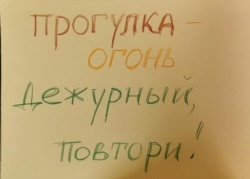 прогулка –
огонь
Дежурный,
повтори!